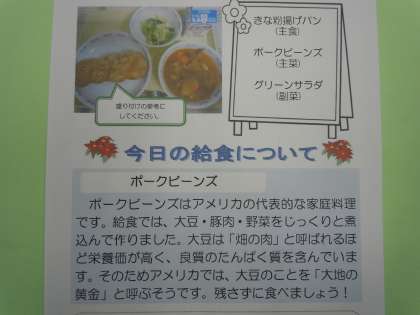 きな粉揚げパン
(主食)
ポークビーンズ
(主菜)
グリーンサラダ
(副菜)
盛り付けの参考に
してください。
今日の給食について
ポークビーンズ
ポークビーンズはアメリカの代表的な家庭料理
です。給食では、大豆・豚肉・野菜をじっくりと煮
込んで作りました。大豆は「畑の肉」と呼ばれるほ
ど栄養価が高く、良質のたんぱく質を含んでいま
す。そのためアメリカでは、大豆のことを「大地の
黄金」と呼ぶそうです。残さずに食べましょう！